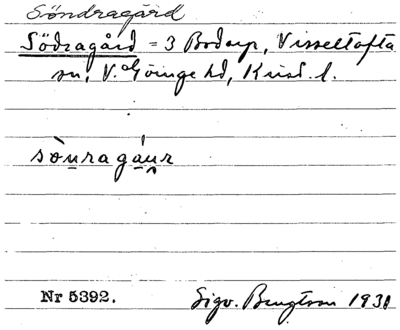 Söndragård
Södragård = 3 Boarp, Visseltofta
sn, V. Göinge hd, Krist. l.
sònragáur
Nr 5392. Sigv. Bengtson 1931